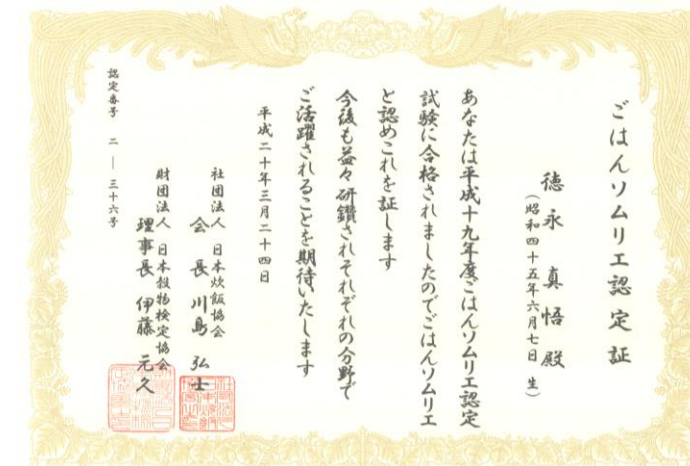 ごはんソムリエ認定証
徳永真悟殿
(昭和四十五年六月七日 生)
あなたは平成十九年度ごはんソムリエ認定
試験に合格されましたのでごはんソムリエ
と認めこれを証します
今後も益々研鑽されそれぞれの分野で
ご活躍されることを期待いたします
平成二十年三月二十四日
社団法人 日本炊飯協会
会長 川島弘士
財団法人 日本穀物検定協会
理事長 伊藤元久
認定番号 二 ― 三十六号